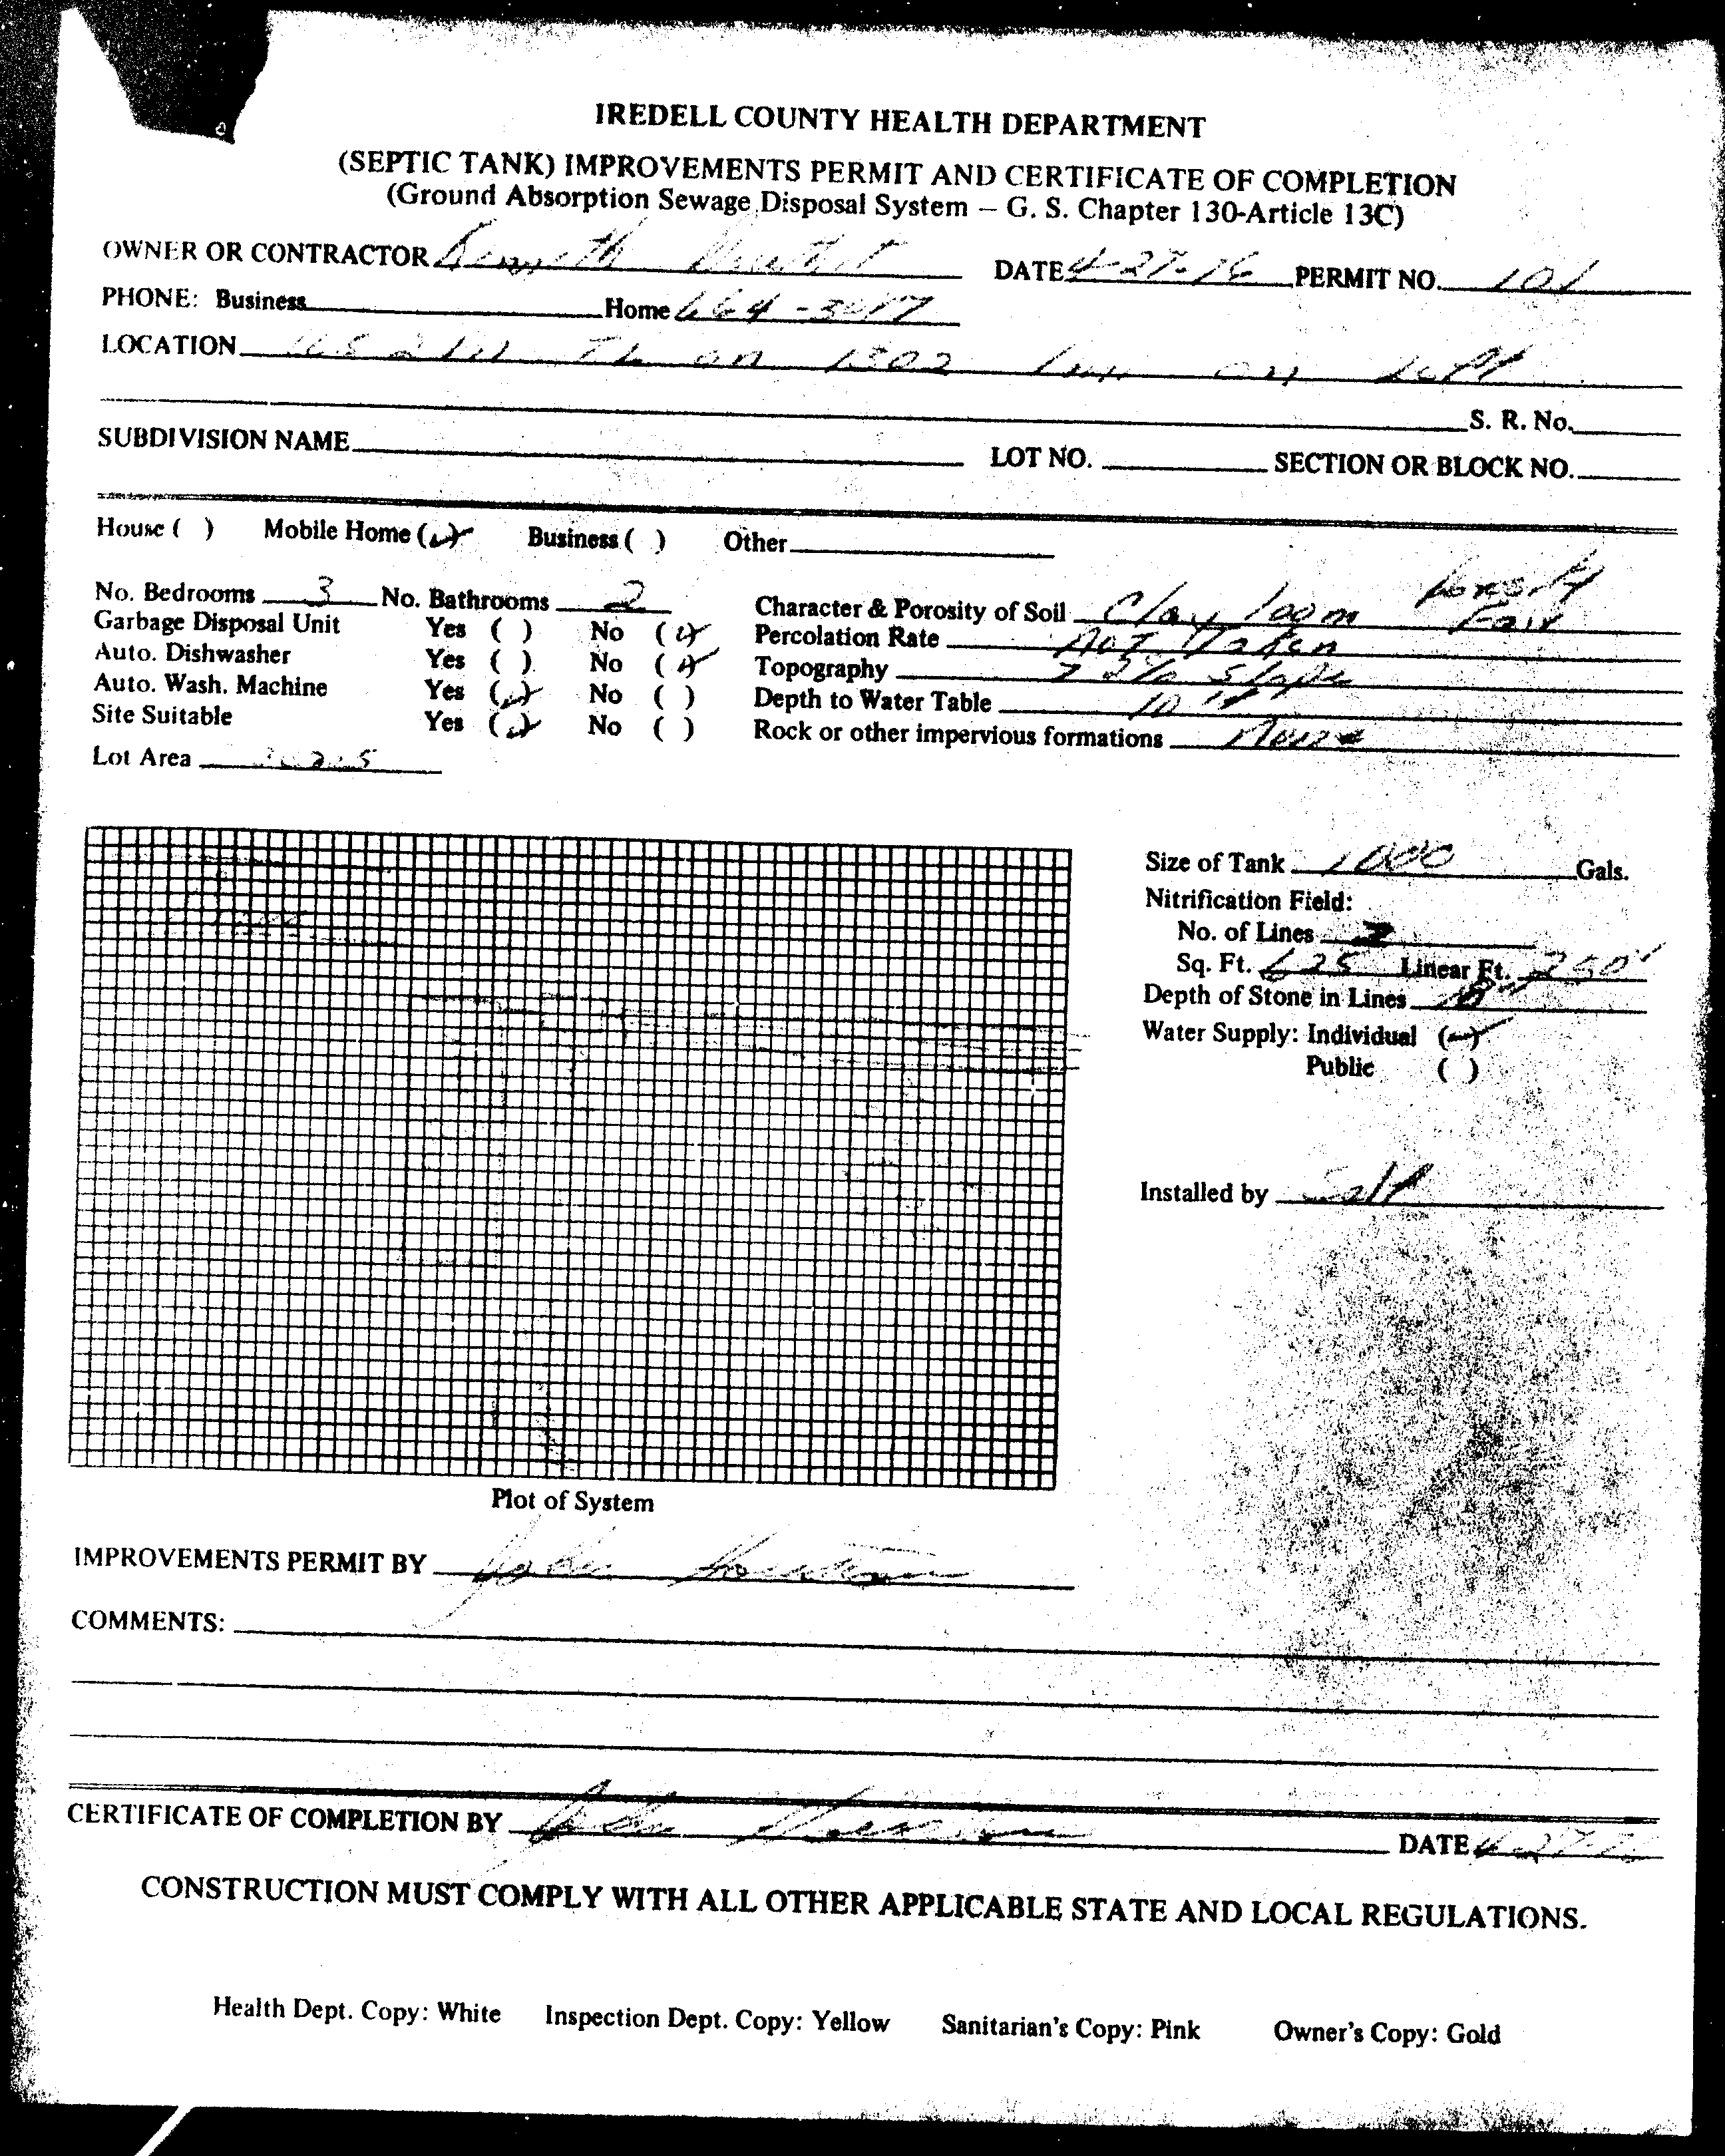 IREDELL COUNTY HEALTH DEPARTMENT
(SEPTIC TANK) IMPROVEMENTS PERMIT AND CERTIFICATE OF COMPLETION
(Ground Absorption Sewage Disposal System – G. S. Chapter 130-Article 13C)
OWNER OR CONTRACTOR Kenneth DATE 4-27-76 PERMIT NO. 101
PHONE: Business Home 664-3017
LOCATION on 1302 on left
S. R. No.
SUBDIVISION NAME LOT NO. SECTION OR BLOCK NO.
House ( ) Mobile Home (✓) Business ( ) Other
No. Bedrooms 3 No. Bathrooms 2 Character & Porosity of Soil Clay loam Porosity Fair
Garbage Disposal Unit Yes ( ) No (✓) Percolation Rate Not Taken
Auto. Dishwasher Yes ( ) No (✓) Topography Slope
Auto. Wash. Machine Yes (✓) No ( ) Depth to Water Table 10
Site Suitable Yes (✓) No ( ) Rock or other impervious formations None
Lot Area
Size of Tank 1000 Gals.
Nitrification Field:
No. of Lines
Sq. Ft. 625 Linear Ft. 250'
Depth of Stone in Lines
Water Supply: Individual (✓)
Public ( )
Installed by Self
Plot of System
IMPROVEMENTS PERMIT BY John
COMMENTS:
CERTIFICATE OF COMPLETION BY John DATE 4-27-76
CONSTRUCTION MUST COMPLY WITH ALL OTHER APPLICABLE STATE AND LOCAL REGULATIONS.
Health Dept. Copy: White Inspection Dept. Copy: Yellow Sanitarian's Copy: Pink Owner's Copy: Gold